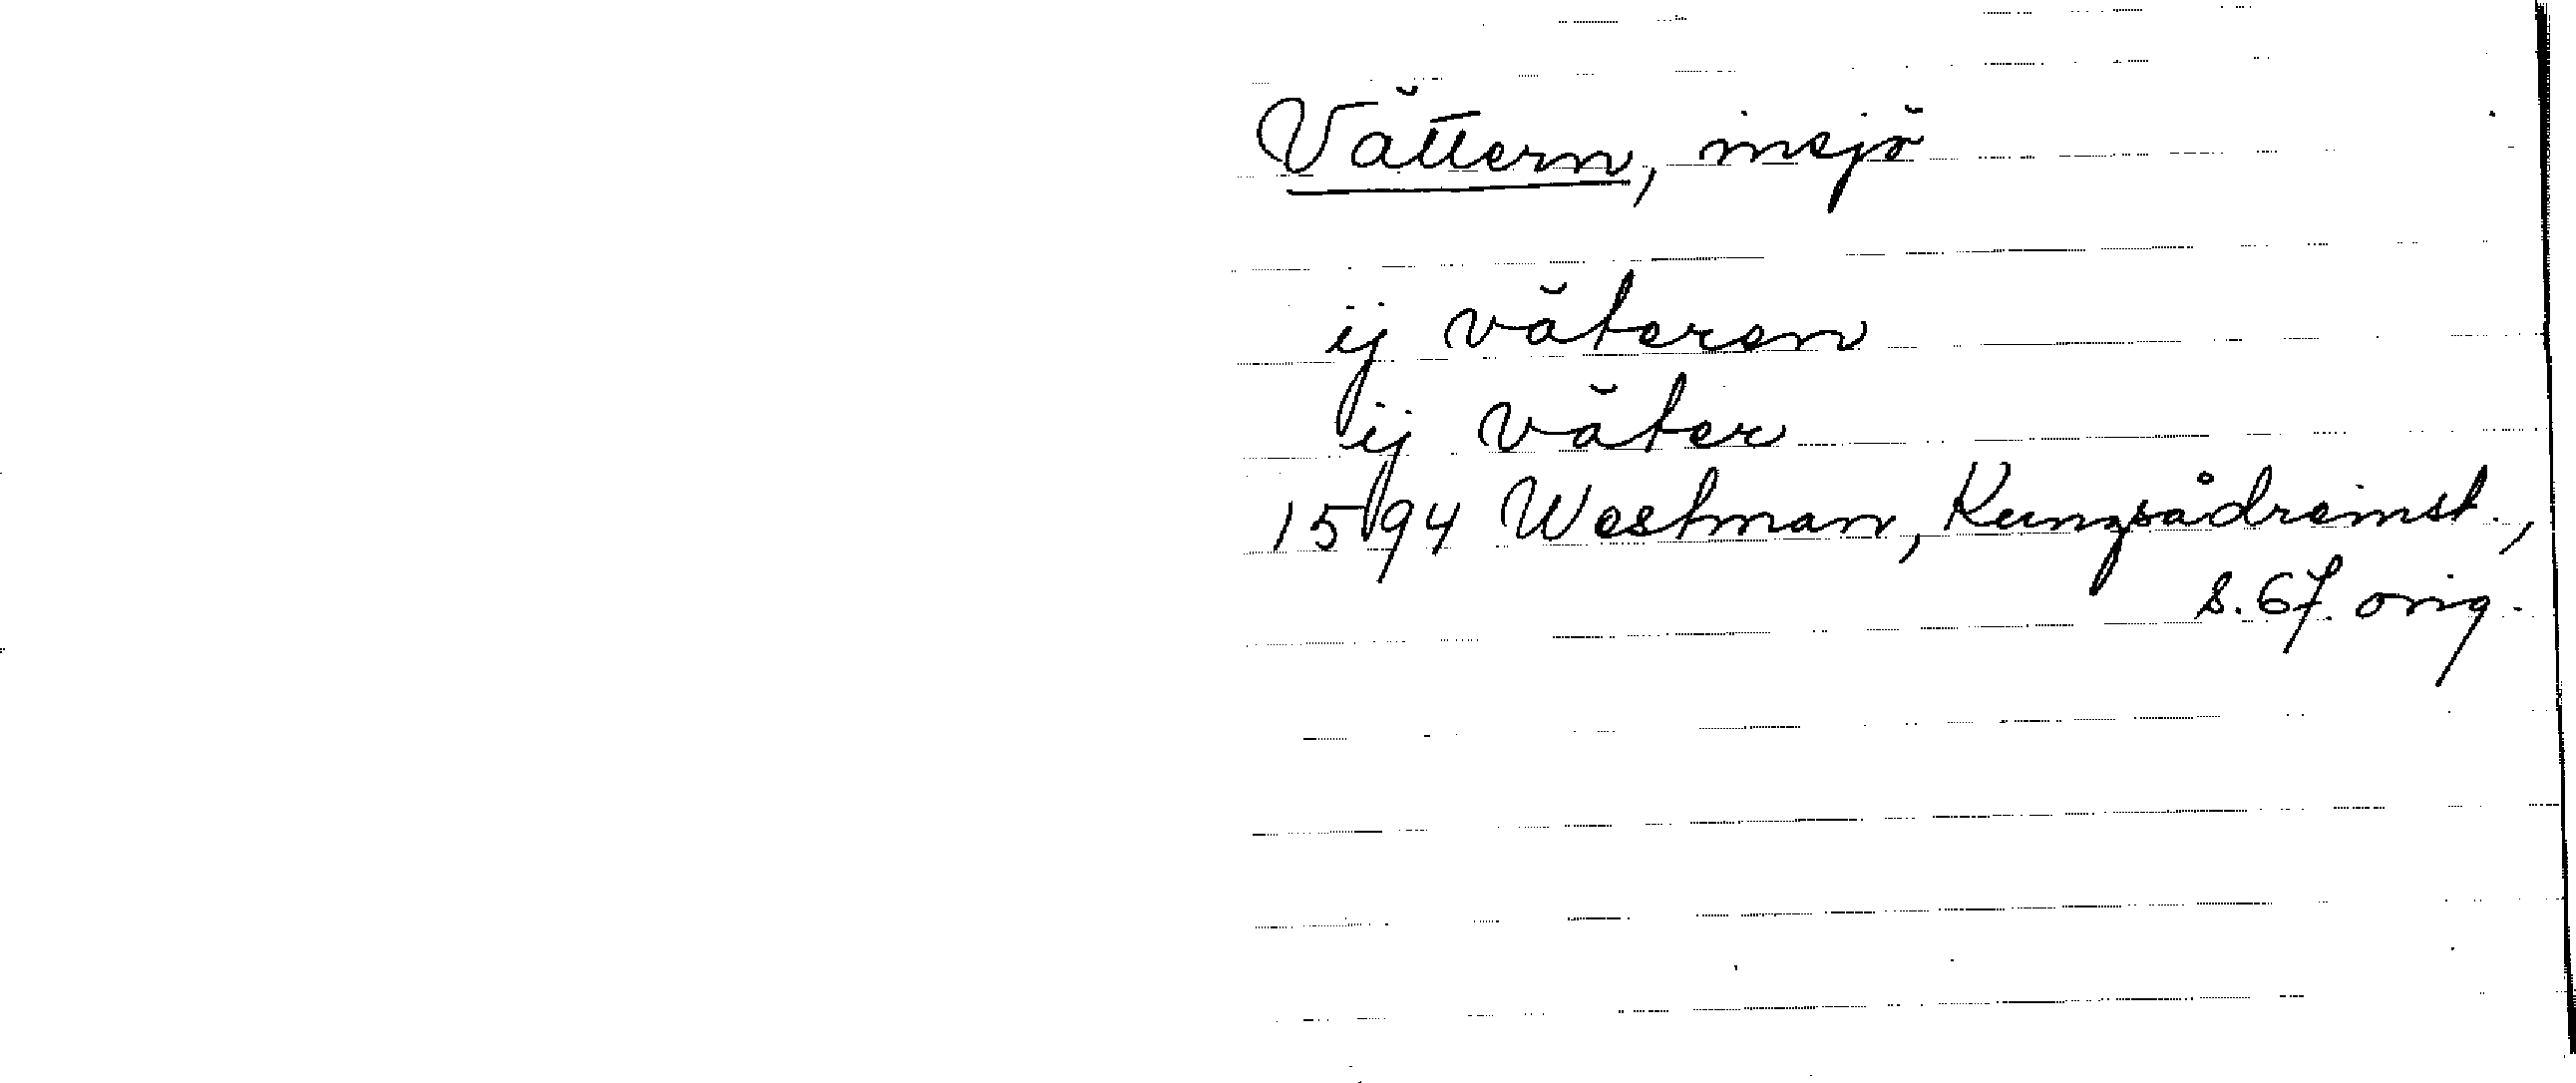 Vättern, insjö
ij väteren
ij väter
1594 Westman, Kungsådreinst.,
s. 67. orig.